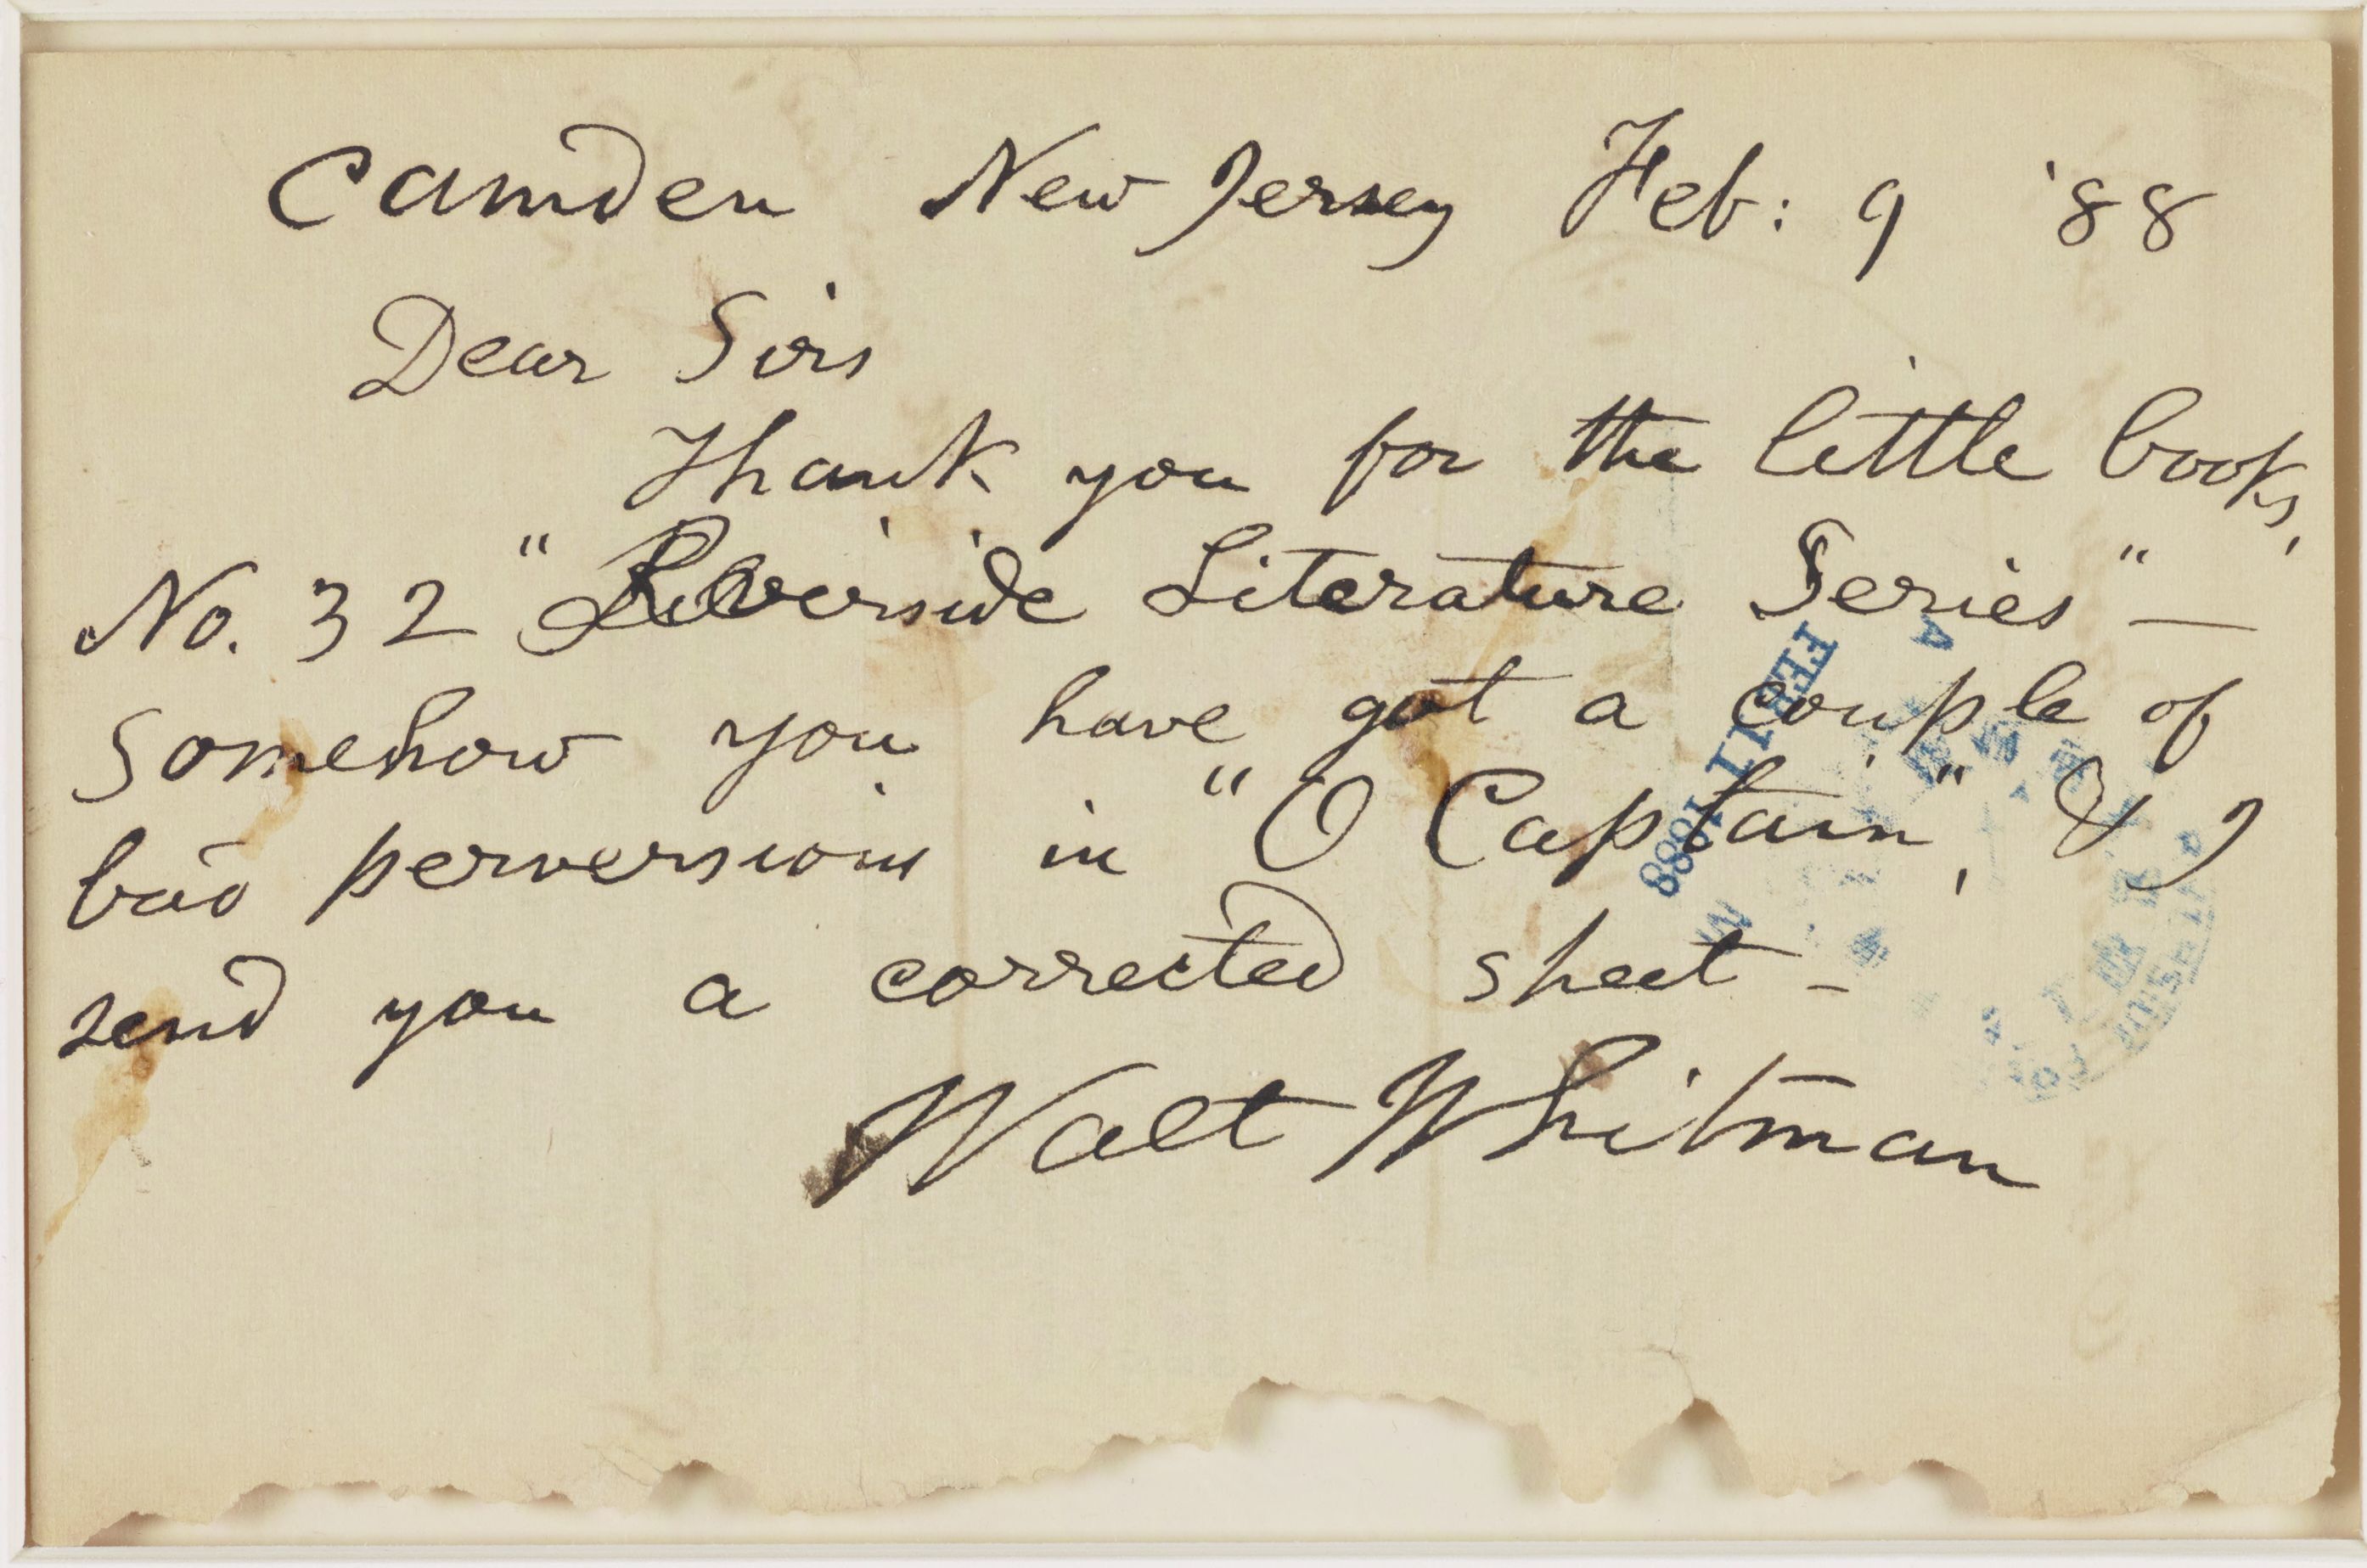 Camden New Jersey Feb: 9 '88
Dear Sirs
Thank you for the little books,
No. 32 "Riverside Literature Series" —
Somehow you have got a couple of
bad perversions in "O Captain", & I
send you a corrected sheet –
Walt Whitman
FEB 11 1888